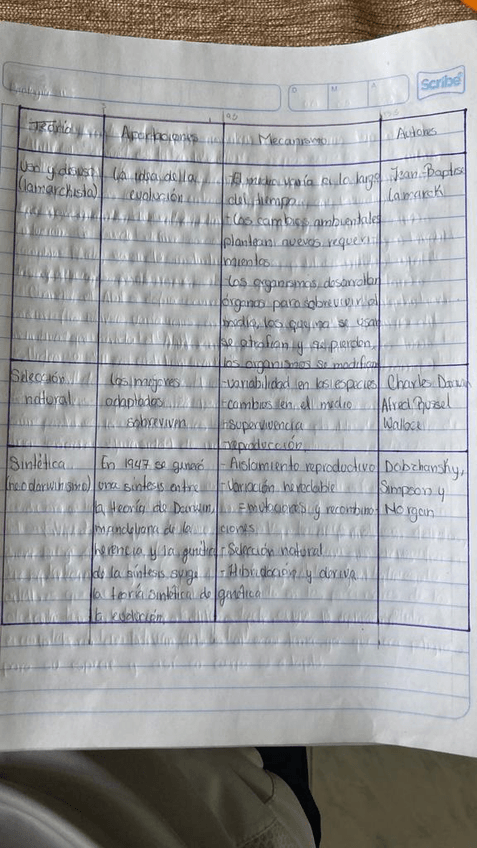 Scribe
D M A
Teoría Aportaciones Mecanismo Autores
Uso y desuso
(lamarckista)
La idea de la
evolución
- El medio varía a lo largo
del tiempo
- Los cambios ambientales
plantean nuevos requeri-
mientos
- Los organismos desarrollan
órganos para sobrevivir al
medio, los que no se usan
se atrofian y se pierden,
los organismos se modifican
Jean-Baptiste
Lamarck
Selección
natural
Los mejores
adaptados
sobreviven
- variabilidad en las especies
- cambios en el medio
- supervivencia
- reproducción
Charles Darwin
Alfred Russel
Wallace
Sintética
(neodarwinismo)
En 1947 se generó
una síntesis entre
la teoría de Darwin,
mandeliana de la
herencia y la genética
de la síntesis surge
la teoría sintética de
la evolución
- Aislamiento reproductivo
- Variación heredable
- Mutaciones y recombina-
ciones
- Selección natural
- Hibridación y deriva
genética
Dobzhansky,
Simpson y
Morgan